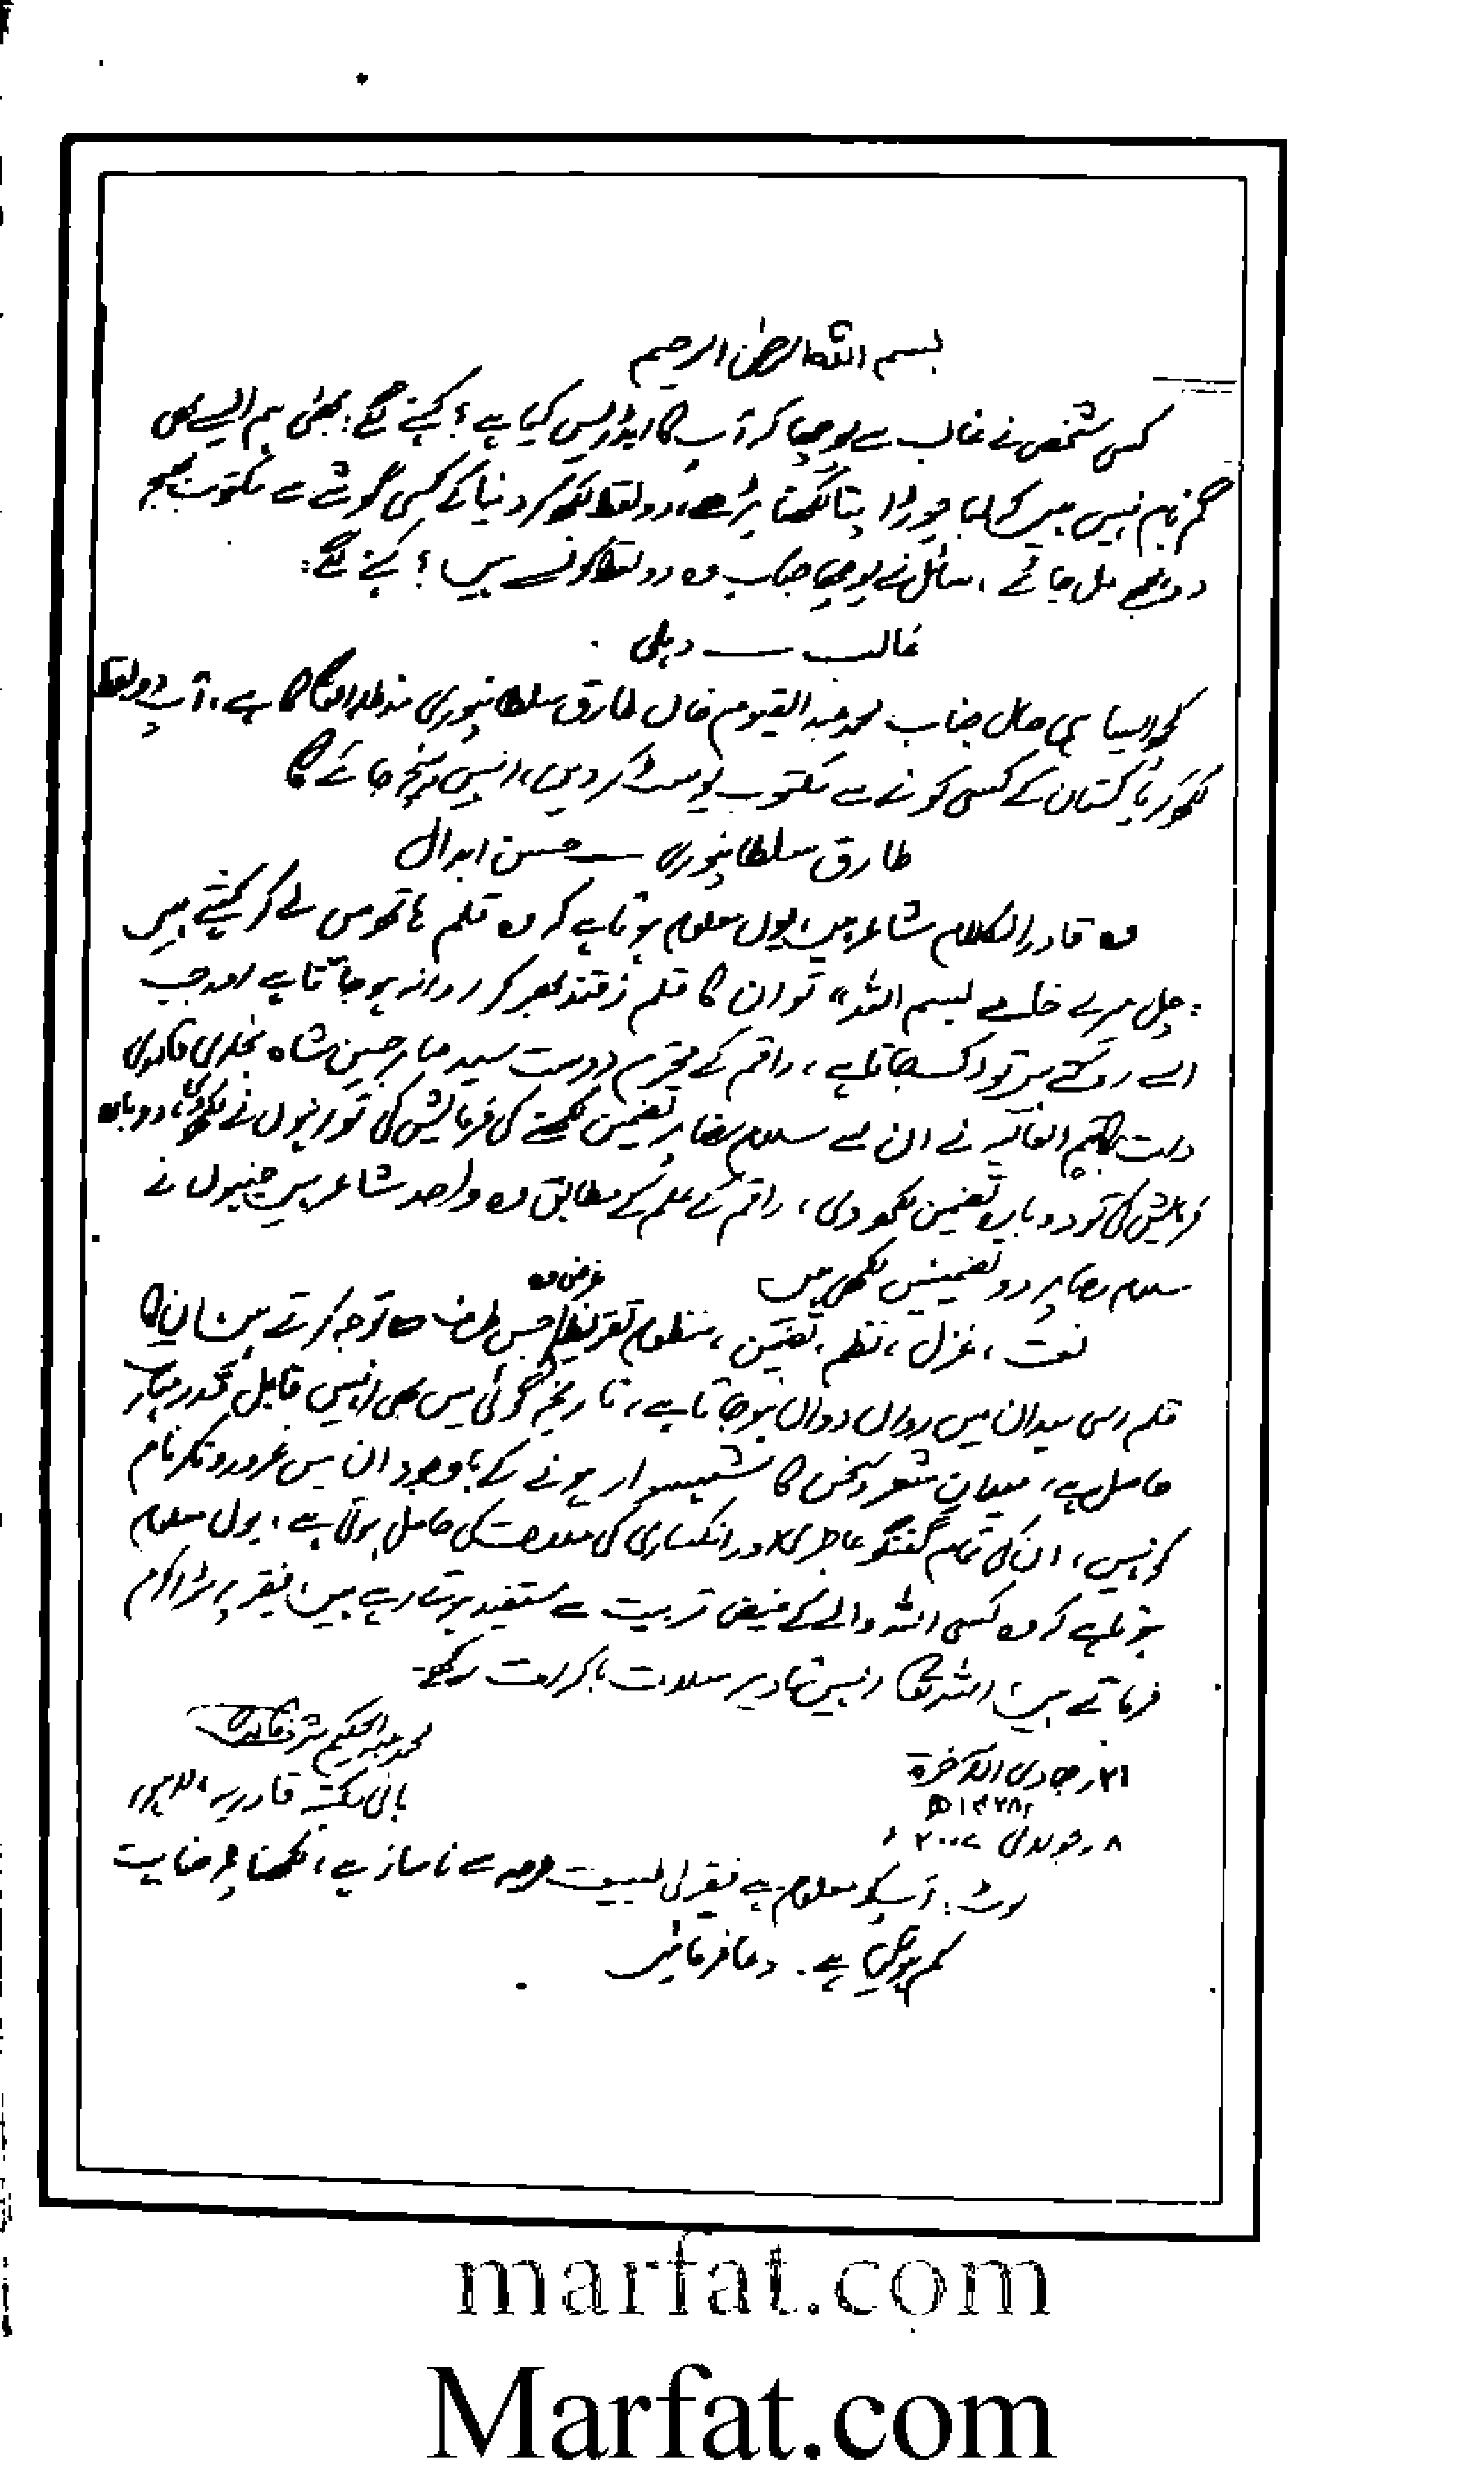 بسم اللہ الرحمن الرحیم
کسی شخص نے غالب سے پوچھا کہ آپ کا ایڈریس کیا ہے؟ کہنے لگے: بھئی ہم ایسے بھی
گم نام نہیں ہیں کہ لمبا چوڑا پتا لکھنا پڑے، دو لفظ لکھ کر دنیا کے کسی گوشے سے مکتوب بھیج
دو مجھے مل جائے، سائل نے پوچھا جناب وہ دو لفظ کونسے ہیں؟ کہنے لگے:
غالب — دہلی
کچھ ایسا ہی حال جناب محمد عبد القیوم خاں طارق سلطانپوری مدظلہ العالی کا ہے، آپ دو لفظ
لکھ کر پاکستان کے کسی کونے سے مکتوب پوسٹ کر دیں، انہیں پہنچ جائے گا
طارق سلطانپوری — حسن ابدال
وہ قادر الکلام شاعر ہیں، یوں معلوم ہوتا ہے کہ وہ قلم ہاتھ میں لے کر کہتے ہیں
: چل مرے خامے بسم اللہ" تو ان کا قلم زقند بھر کر روانہ ہو جاتا ہے اور جب
اسے روکتے ہیں تو رک جاتا ہے، راقم کے محترم دوست سید صابر حسین شاہ بخاری قادری
دامت برکاتہم العالیہ نے ان سے سلام رضا پر تضمین لکھنے کی فرمایش کی تو انہوں نے لکھ دی، دوبارہ
فرمایش کی تو دوبارہ تضمین لکھ دی، راقم کے علم کے مطابق وہ واحد شاعر ہیں جنہوں نے
سلام رضا پر دو تضمینیں لکھی ہیں
نعت، غزل، نظم، تضمین، منظوم تقریظ غرض وہ جس طرف توجہ کرتے ہیں ان کا
قلم اسی میدان میں رواں دواں ہو جاتا ہے، تاریخ گوئی میں بھی انہیں قابل قدر مہارت
حاصل ہے، میدان شعر و سخن کا شہسوار ہونے کے باوجود ان میں غرور و تکبر نام
کو نہیں، ان کی تمام گفتگو عاجزی اور انکساری کی حامل ہوتی ہے، یوں معلوم
ہوتا ہے کہ وہ کسی اللہ والے کے فیض تربیت سے مستفید ہوتے رہے ہیں، فقیر پر بڑا کرم
فرماتے ہیں، اللہ تعالی انہیں تا دیر سلامت باکرامت رکھے۔
محمد عبد الحکیم شرف قادری
بانی مکتبہ قادریہ، لاہور
۲۱ر جمادی الآخرۃ
۱۴۲۸ھ
۸ر جولائی ۲۰۰۷ء
نوٹ: آپ کو معلوم ہے فقیر کی طبیعت عرصہ سے ناساز ہے، لکھنا پڑھنا بہت
کم ہو گیا ہے۔ دعا فرمائیں
marfat.com
Marfat.com